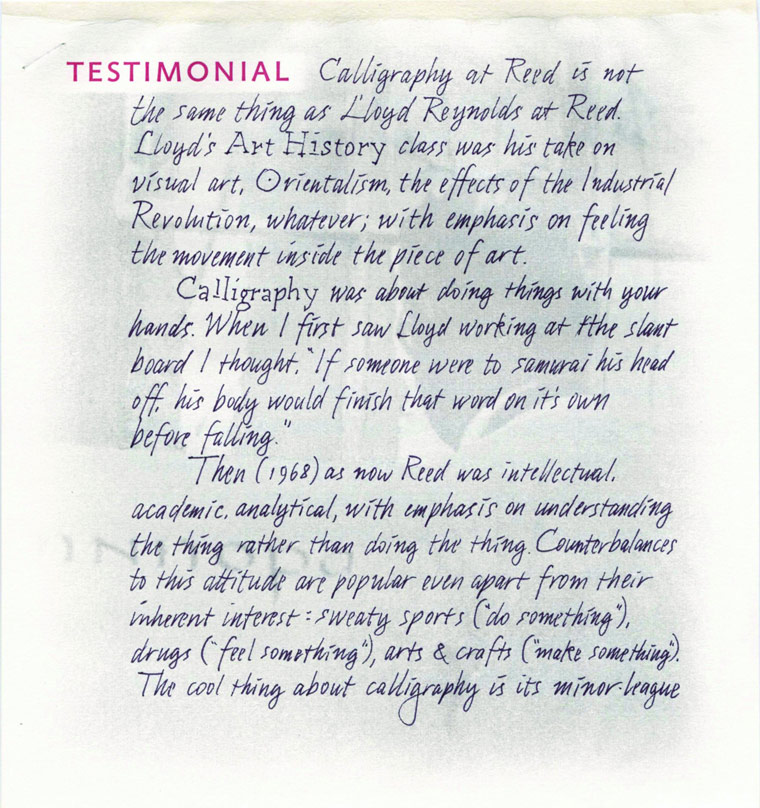 TESTIMONIAL Calligraphy at Reed is not
the same thing as Lloyd Reynolds at Reed.
Lloyd's Art History class was his take on
visual art, Orientalism, the effects of the Industrial
Revolution, whatever; with emphasis on feeling
the movement inside the piece of art.
Calligraphy was about doing things with your
hands. When I first saw Lloyd working at the slant
board I thought, "If someone were to samurai his head
off, his body would finish that word on it's own
before falling."
Then (1968) as now Reed was intellectual,
academic, analytical, with emphasis on understanding
the thing rather than doing the thing. Counterbalances
to this attitude are popular even apart from their
inherent interest: sweaty sports ("do something"),
drugs ("feel something"), arts & crafts ("make something").
The cool thing about calligraphy is its minor-league